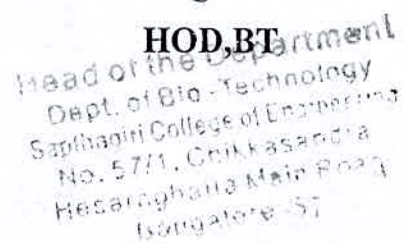 HOD,BT
Head of the Department
Dept. of Bio-Technology
Sapthagiri College of Engineering
No. 57/1, Chikkasandra
Hesarghatta Main Road
Bangalore-57